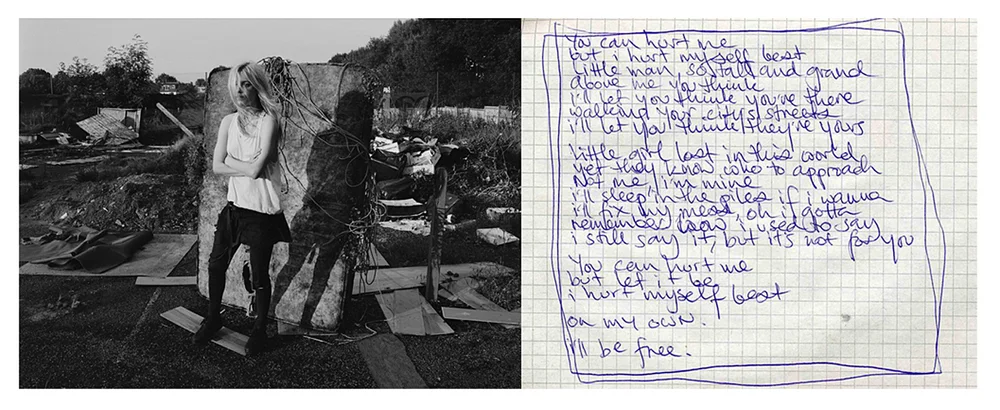 You can hurt me
but i hurt myself best
Little man so tall and grand
above me you think
i'll let you think you're there
walking your city's streets
i'll let you think they're yours
Little girl lost in this world
yet they know who to approach
Not me, i'm mine
i'll sleep in the piles if i wanna
i'll fix my mess, oh i gotta
remember how i used to say
i still say it, but it's not for you
You can hurt me
but let it be
i hurt myself best
on my own.
i'll be free.